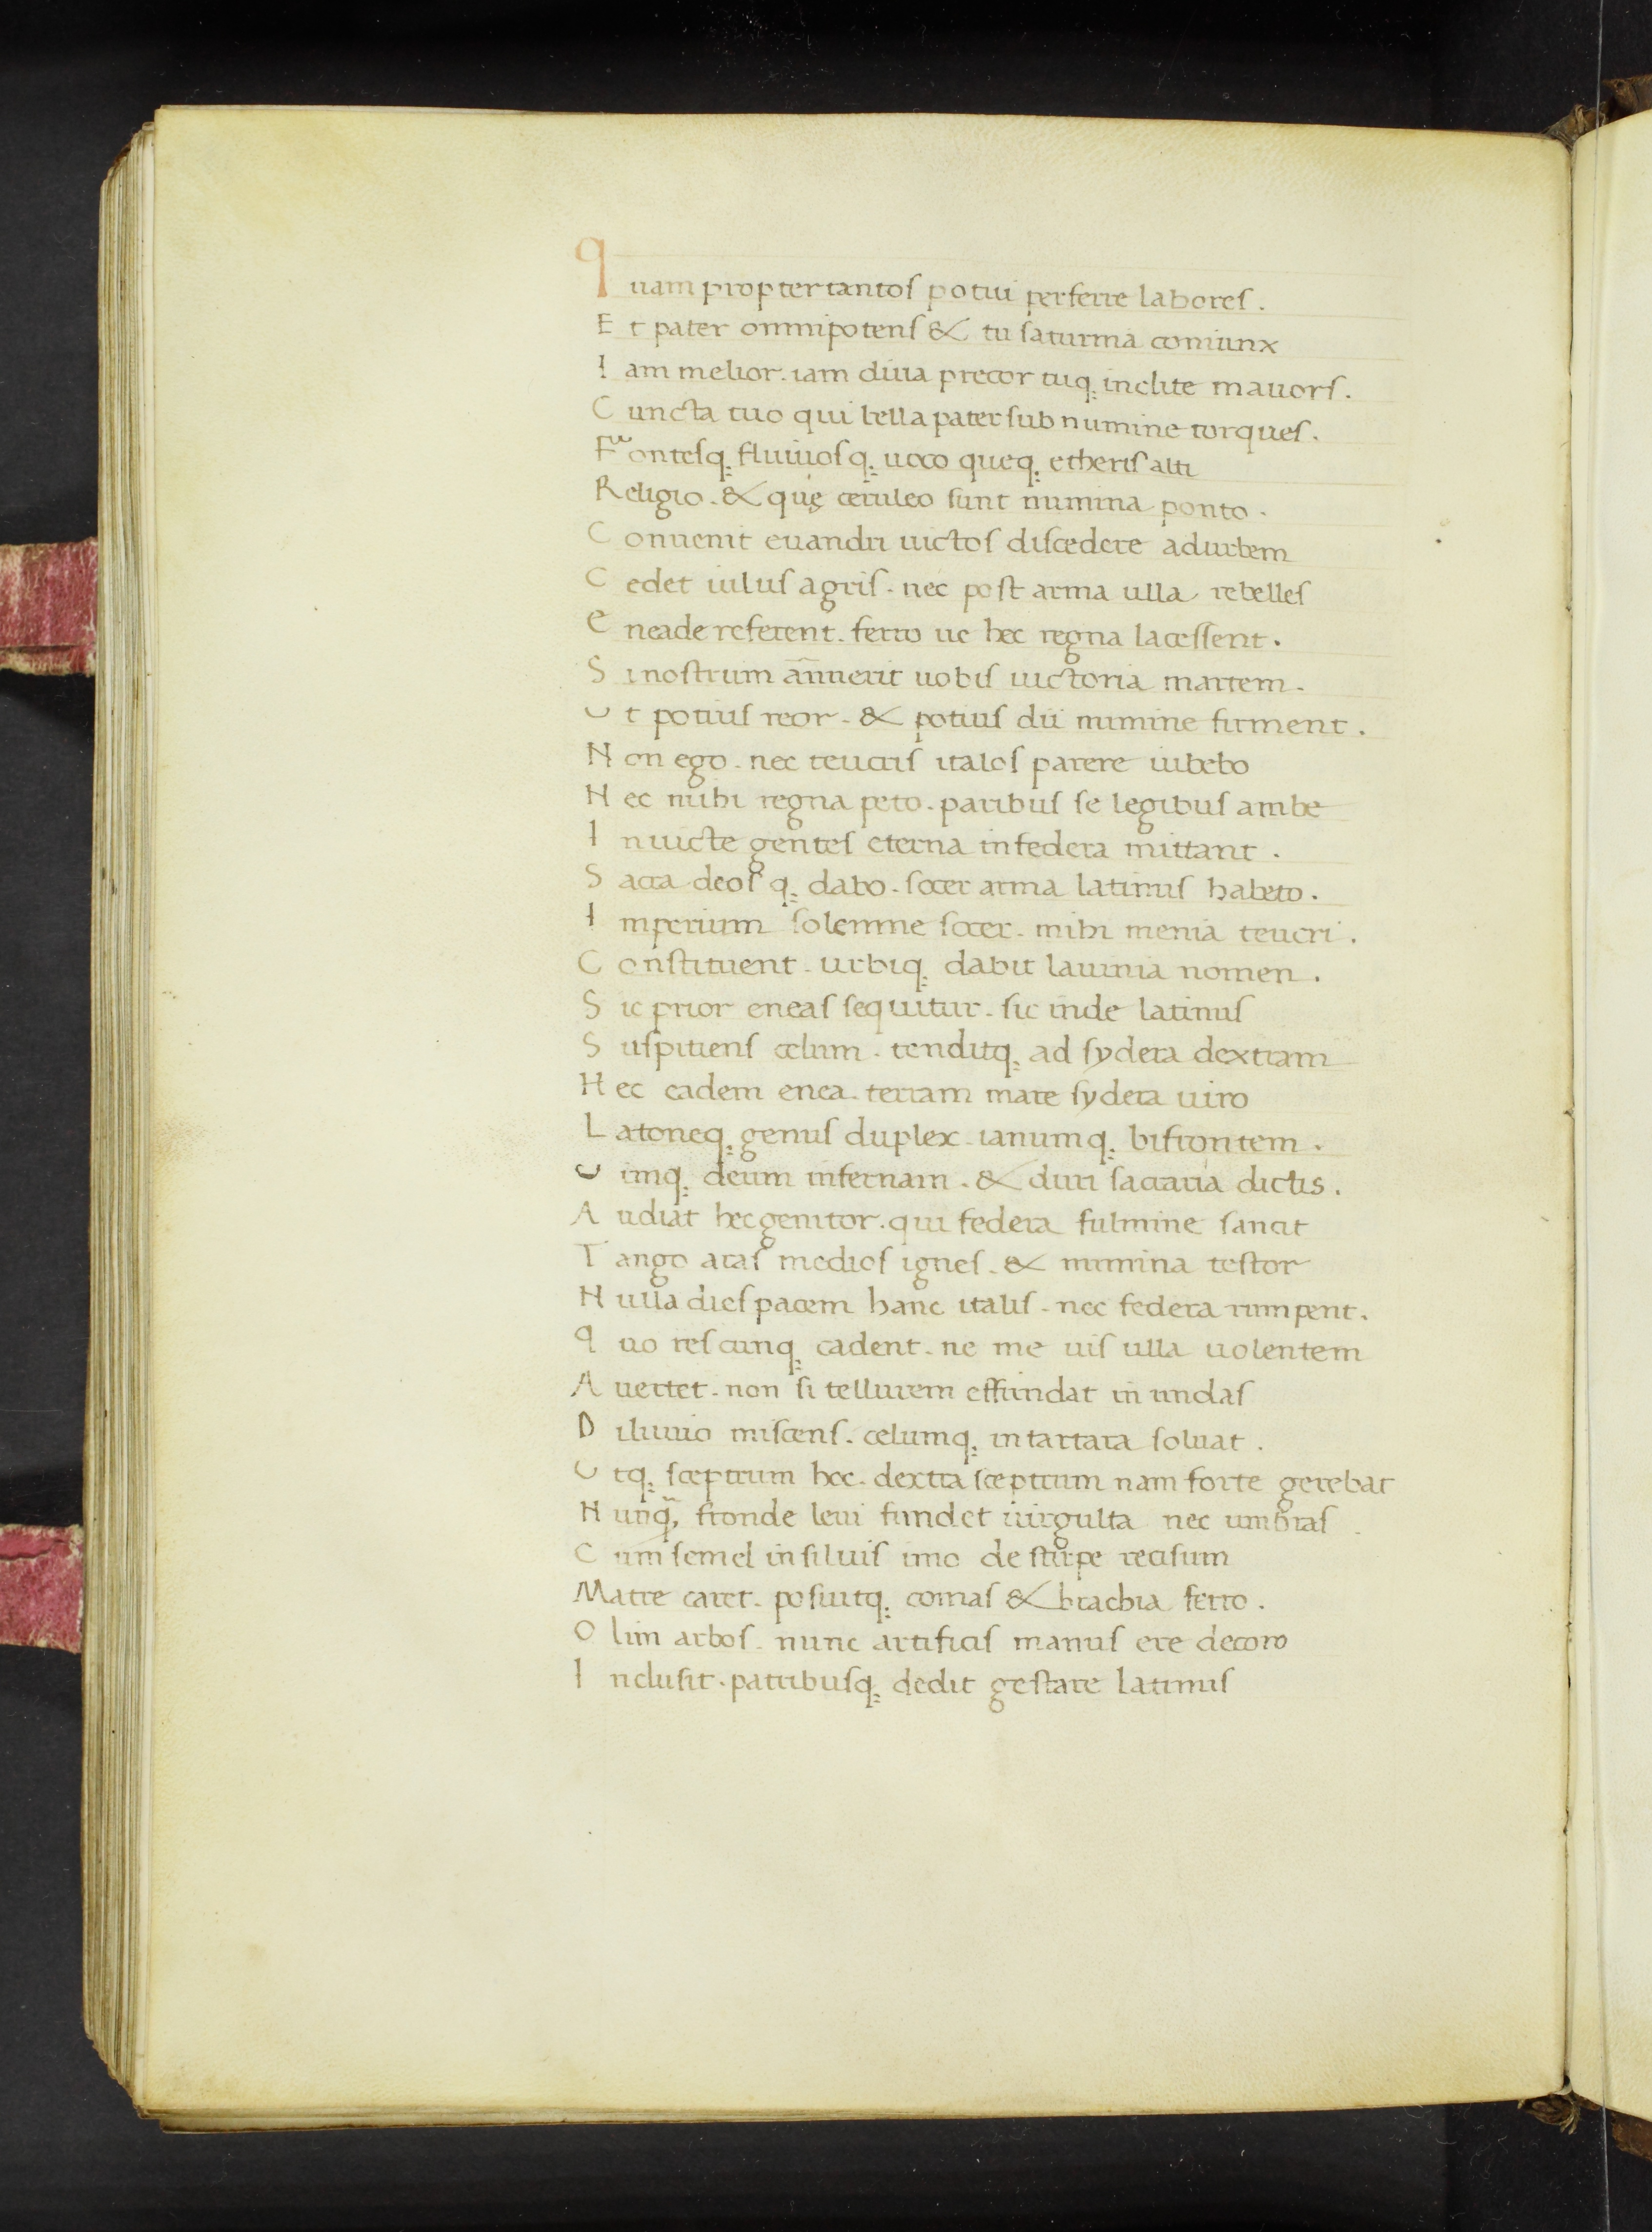 quam propter tantos potui perferre labores.
Et pater omnipotens & tu saturnia coniunx
Iam melior. iam diua precor tuq; inclite mauors.
Cuncta tuo qui bella pater sub numine torques.
Fontesq; fluuiosq; uoco queq; etheris alti
Religio. & quę ceruleo sunt numina ponto.
Conuenit euandri uictos discedere ad urbem
Cedet iulus agris. nec post arma ulla rebelles
Eneade referent. ferro ue hec regna lacessent.
Si nostrum annuerit uobis uictoria martem.
Ut potius reor. & potius dii numine firment.
Non ego. nec teucris italos parere iubebo
Nec mihi regna peto. paribus se legibus ambe
Inuicte gentes eterna in federa mittant.
Sacra deosq; dabo. socer arma latinus habeto.
Imperium solemne socer. mihi menia teucri.
Constituent. urbiq; dabit lauinia nomen.
Sic prior eneas sequitur. sic inde latinus
Suspitiens celum. tenditq; ad sydera dextram
Hec eadem enea. terram mare sydera uiro
Latoneq; genus duplex. ianumq; bifrontem.
Uimq; deum infernam. & duri sacraria dictis.
Audiat hec genitor. qui federa fulmine sancit
Tango aras medios ignes. & numina testor
Nulla dies pacem hanc italis. nec federa rumpent.
quo res cunq; cadent. ne me uis ulla uolentem
Auertet. non si tellurem effundat in undas
Diluuio miscens. celumq; in tartara soluat.
Utq; sceptrum hoc. dextra sceptrum nam forte gerebat
Nunq̃, fronde leui fundet uirgulta nec umbras.
Cum semel in siluis imo de stirpe recisum
Matre caret. posuitq; comas & brachia ferro.
Olim arbos. nunc artificis manus ere decoro
Inclusit. patribusq; dedit gestare latinus